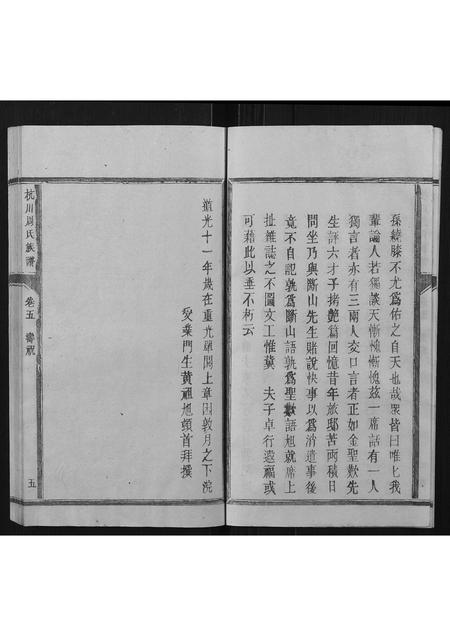 孫繞膝不尤為佑之自天也哉眾皆曰唯匕我
輩論人若獨談天慚愧慚愧茲一席話有一人
獨言者亦有三兩人交口言者正如金聖歎先
生評六才子拷艷篇回憶昔年旅邸苦兩積日
問坐乃與斷山先生賭說快事以為消遣事後
竟不自記孰為斷山語孰為聖歎語旭就席上
扯雜誌之不圖文工惟冀 夫子卓行遠福或
可藉此以垂不朽云
道光十一年歲在重光單閼上章困敦月之下浣
受業門生黃祖旭頓首拜撰
杭川周氏族譜
卷五 壽祝
五